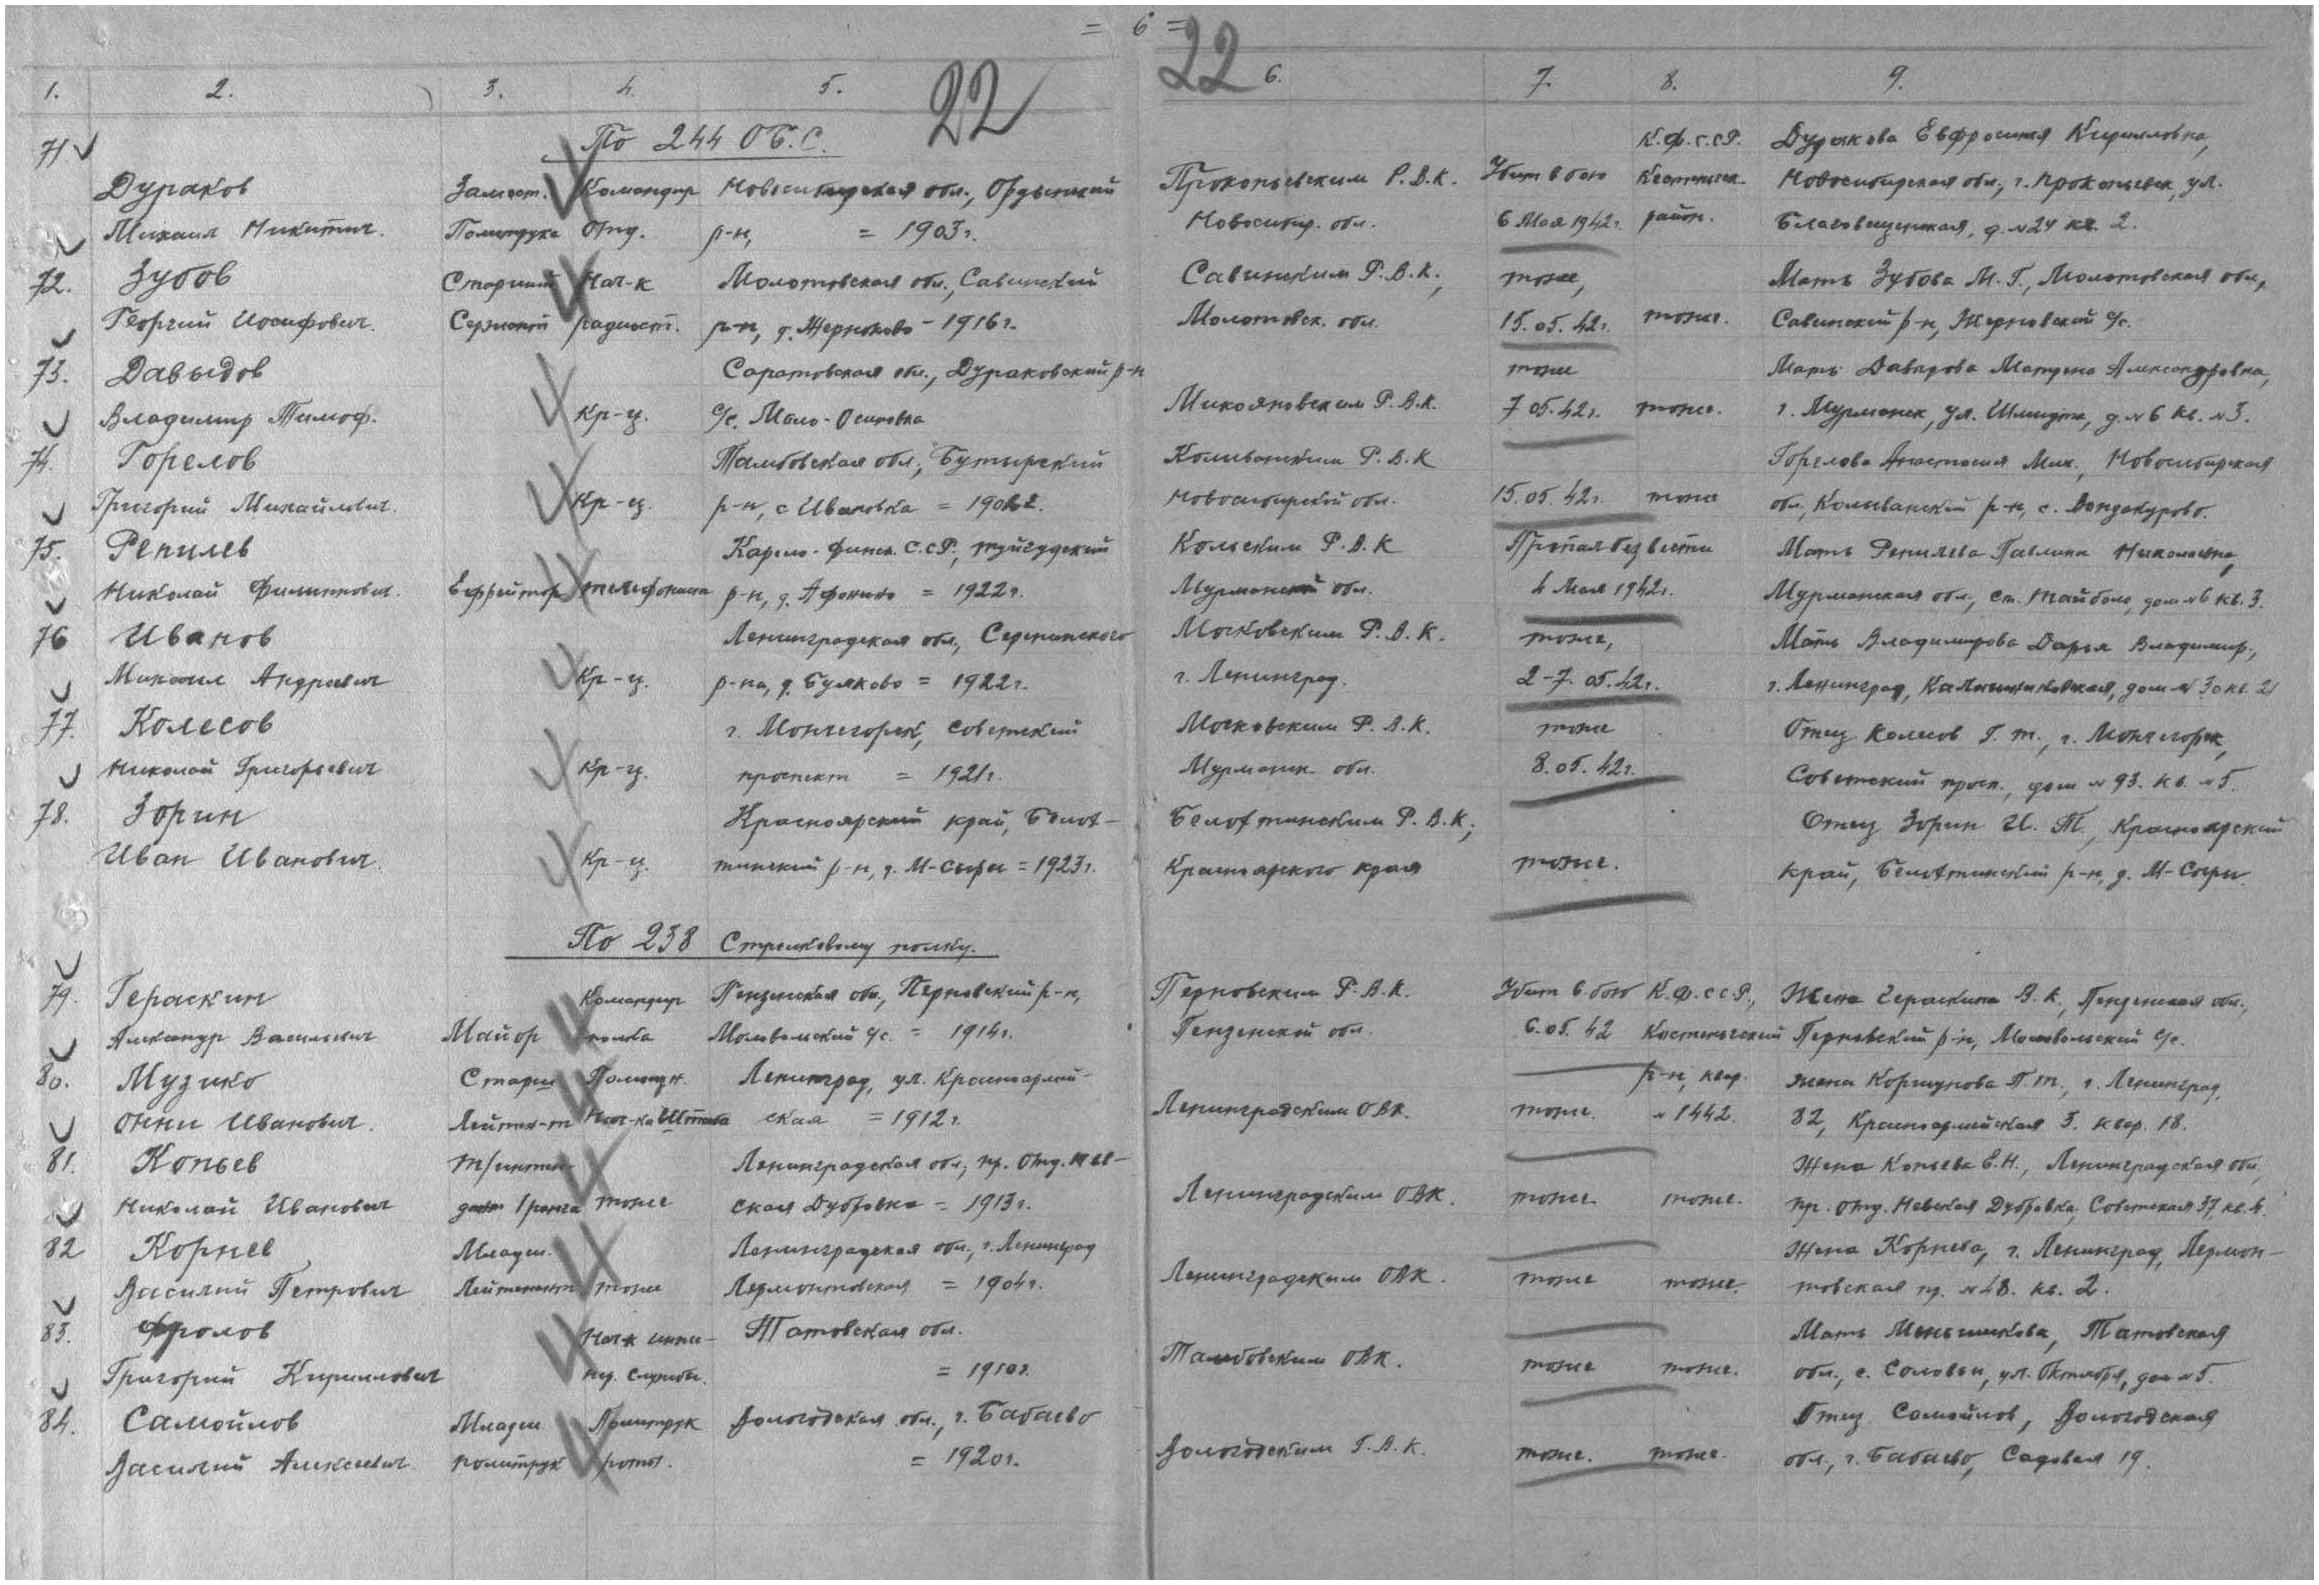 = 6 =
22
22
1. 2. 3. 4. 5. 6. 7. 8. 9.
По 244 О.Б.С.
71 К.Ф.С.С.Р. Дуракова Евфросиния Кирилловна,
Дураков Замест. Командир Новосибирская обл., Ордынский Прокопьевским Р.В.К. Убит в бою Новосибирская обл., г. Прокопьевск, ул.
Михаил Никитич. Политрука Отд. р-н, = 1903г. Новосибир. обл. 6 Мая 1942г. район. Благовещенская, д. №24 кв. 2.
72. Зубов Старший Нач-к Молотовская обл., Савинский Савинским Р.В.К., тоже, Мать Зубова М.Г., Молотовская обл.,
Георгий Иосифович. Сержант радиост. р-н, д. - 1916г. Молотовск. обл. 15.05.42г. тоже. Савинский р-н, с/с.
73. Давыдов Саратовская обл., Дураковский р-н тоже Мать Давыдова Матрена Александровна,
Владимир Тимоф. Кр-ц. с/с. Мало-Осиповка Микояновским Р.В.К. 7 05.42г. тоже. г. Мурманск, ул. Шмидта, д. №6 кв. №3.
74. Горелов Тамбовская обл., Бутырский Колыванским Р.В.К Горелова Анастасия Мих., Новосибирская
Григорий Михайлович. Кр-ц. р-н, с Ивановка = Новосибирской обл. 15.05.42г. тоже обл, Колыванский р-н, с. Вандакурово.
75. Репилев Карело-Финск. С.С.Р., Кольским Р.В.К Пропал без вести Мать Репилева Павлина Николаевна,
Николай Филиппович. Ефрейтор телефонист р-н, д. Афонино = 1922г. Мурманской обл. 4 Мая 1942г. Мурманская обл., ст. Тайбола, дом №6 кв. 3.
76 Иванов Ленинградская обл., Московским Р.В.К. тоже, Мать Владимирова Дарья Владимир.,
Михаил Андреевич Кр-ц. р-на, д. = 1922г. г. Ленинград. 2-7.05.42г. г. Ленинград, дом № 30 кв. 21
77. Колесов г. Мончегорск, Советский Московским Р.В.К. тоже Отец Колесов Г.Т., г. Мончегорск,
Николай Григорьевич Кр-ц. проспект = 1921г. Мурманск. обл. 8.05.42г. Советский просп., дом № 93. кв. №5.
78. Зорин Красноярский край, Р.В.К; Отец Зорин И. Т., Красноярский
Иван Иванович. Кр-ц. тинский р-н, д. М-Сыры = 1923г. Красноярского края тоже. край, р-н, д. М-Сыры.
По 238 Стрелковому полку.
79. Гераскин Командир Пензенская обл., Р.В.К. Убит в бою К.Ф.С.С.Р., Жена Гераскина В.К., Пензенская обл.,
Александр Васильевич Майор полка с/с. = 1914г. Пензенской обл. 6.05.42 р-н, с/с.
80. Музико Старш Помощн. Ленинград, ул. Красноармей- р-н, квар. жена Коршунова П.Т., г. Ленинград,
Онни Иванович. Лейтен-т Нач-ка Штаба ская = 1912г. Ленинградским ОВК. тоже. № 1442. 82, Красноармейская 3. квар. 18.
81. Копьев т/интен- Ленинградская обл, пр. отд. Нев- Жена Копьева Е.Н., Ленинградская обл,
Николай Иванович дант 1 ранга тоже ская Дубровка = 1913г. Ленинградским ОВК. тоже. тоже. пр. отд. Невская Дубровка, Советская 37, кв. 4.
82 Корнев Младш. Ленинградская обл., г. Ленинград Жена Корнева, г. Ленинград, Лермон-
Василий Петрович Лейтенант тоже Лермонтовская = 1904г. Ленинградским ОВК. тоже тоже. товская пр. №48. кв. 2.
83. Фролов Нач-к Татовская обл. Мать Меньшикова, Татовская
Григорий Кириллович служебы. = 1910г. Тамбовским ОВК. тоже тоже. обл., с. Соловьи, ул. Октября, дом №5.
84. Самойлов Младш Политрук Вологодская обл., г. Бабаево Отец Самойлов, Вологодская
Василий Алексеевич. политрук роты. = 1920г. Вологодским Г.В.К. тоже. тоже. обл., г. Бабаево, Садовая 19.